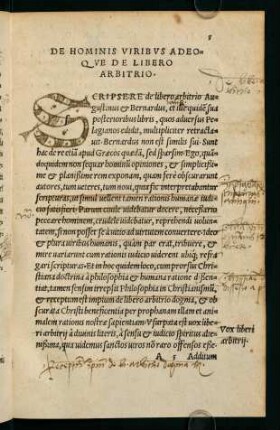 5
DE HOMINIS VIRIBVS ADEO-
QVE DE LIBERO
ARBITRIO.
SCRIPSERE de libero arbitrio Au
gustinus & Bernardus, et ille quidẽ sua
posterioribus libris, quos aduersus Pe
lagianos edidit, multipliciter retracta
uit. Bernardus non est similis sui. Sunt
hac de re etiã apud Græcos quædã, sed sparsim. Ego, quã
do quidem non sequar hominũ opiniones, & simplicissi
me & planissime rem exponam, quam fere obscurarunt
autores, tum ueteres, tum noui, quia sic interpretabantur
scripturas, ut simul uellent hominum rationis iudicio
satisfacere. Parum ciuile uidebatur docere, necessario
peccare hominem, crudele uidebatur, reprehendi uolun
tatem, si non posset se à uitio ad uirtutem conuertere. Ideo
& plura uiribus humanis, quàm par erat, tribuere, &
mire uariarunt cum rationis iudicio uiderent ubiq; re
fragari scripturas. Et in hoc quidem loco, cum prorsus Chri
stiana doctrina à philosophia & humana ratione dissen
tiat, tamen sensim irrepsit Philosophia in Christianismũ,
& receptum est impium de libero arbitrio dogma, & ob
scurata Christi beneficentia per prophanam illam et animalem
rationis nostræ sapientiam. Vsurpata est uox liberi
arbitrij à diuinis literis, à sensu & iudicio spiritus alie
nissima, qua uidemus sanctos uiros nõ raro offensos esse.
Vox liberi
arbitrij.
A 5 Additum